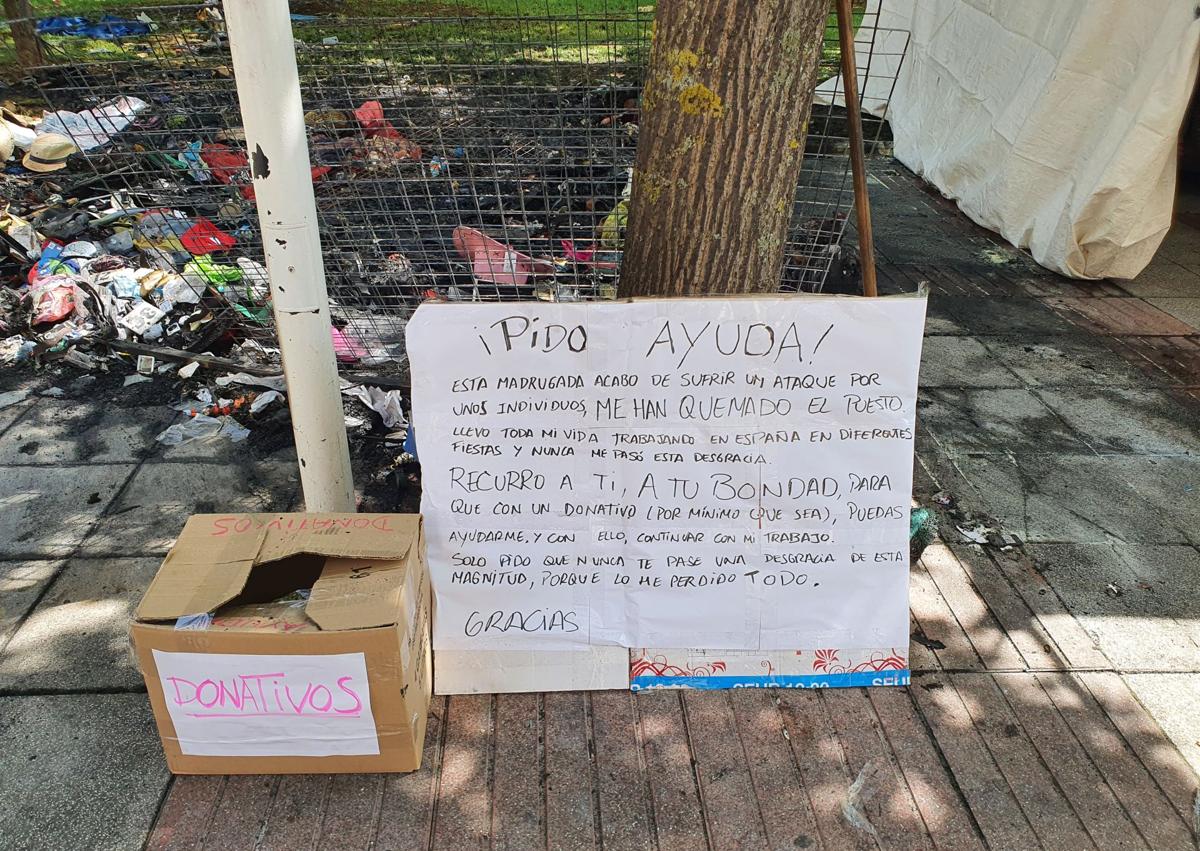 ¡PIDO AYUDA!
ESTA MADRUGADA ACABO DE SUFRIR UN ATAQUE POR
UNOS INDIVIDUOS, ME HAN QUEMADO EL PUESTO.
LLEVO TODA MI VIDA TRABAJANDO EN ESPAÑA EN DIFERENTES
FIESTAS Y NUNCA ME PASÓ ESTA DESGRACIA.
RECURRO A TI, A TU BONDAD, PARA
QUE CON UN DONATIVO (POR MÍNIMO QUE SEA), PUEDAS
AYUDARME, Y CON ELLO, CONTINUAR CON MI TRABAJO.
SOLO PIDO QUE NUNCA TE PASE UNA DESGRACIA DE ESTA
MAGNITUD, PORQUE LO HE PERDIDO TODO.
GRACIAS
DONATIVOS
DONATIVOS
DONATIVOS